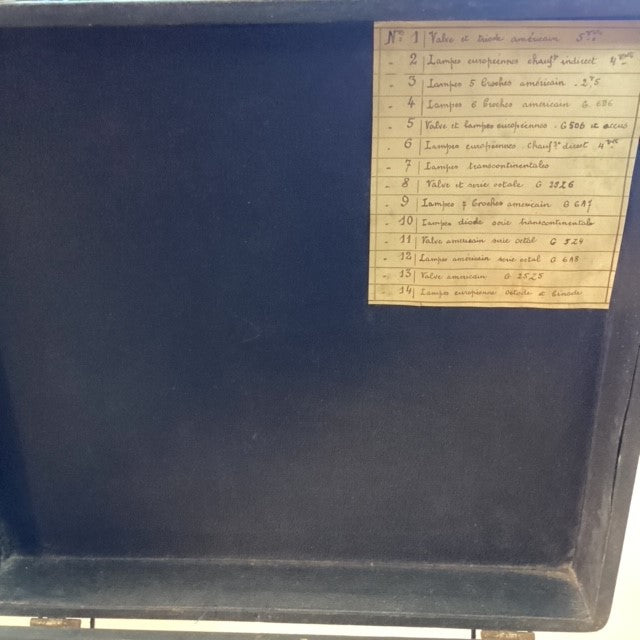 Nº 1 Valve et triode américain 5
" 2 Lampes européennes chaufft indirect 4
" 3 Lampes 5 broches américain . 2,5
" 4 Lampes 6 broches américain G 6D6
" 5 Valve et lampes européennes . G 506 et accus
" 6 Lampes européennes . chaufft direct 4
" 7 Lampes transcontinentales
" 8 Valve et serie octale G 25Z6
" 9 Lampes 7 broches américain G 6A7
" 10 Lampes diode serie transcontinentale
" 11 Valve américain serie octal G 5Z4
" 12 Lampes américain serie octal G 6A8
" 13 Valve américain G 25Z5
" 14 Lampes européenne octode et binode